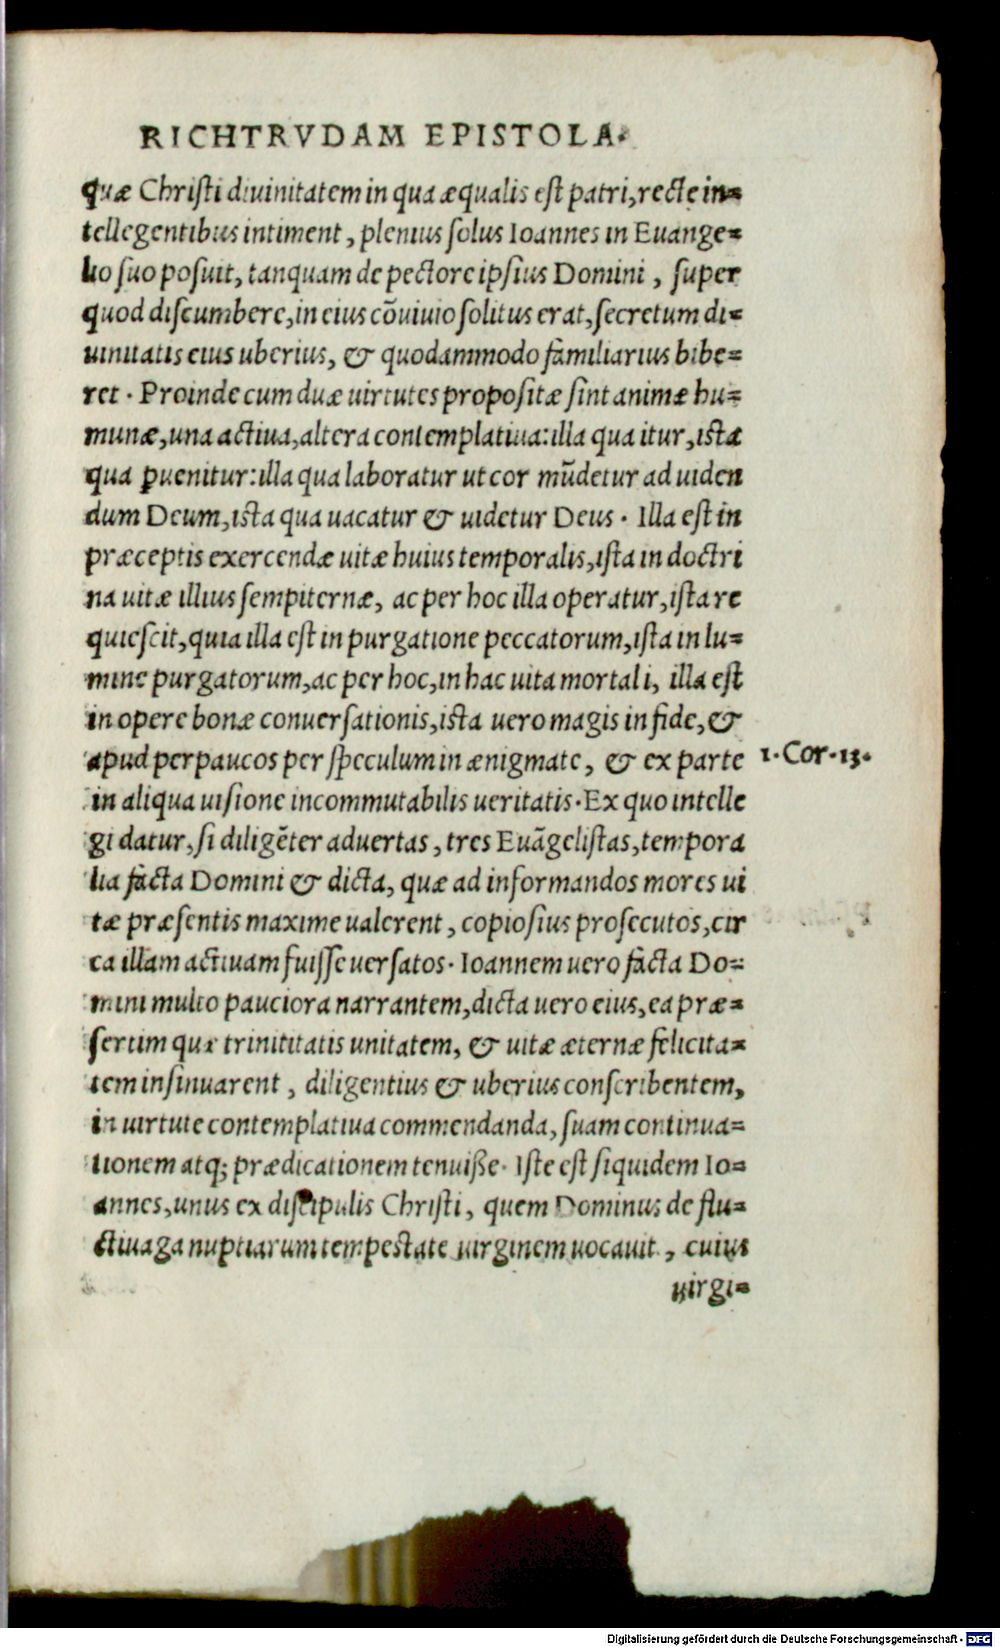 RICHTRVDAM EPISTOLA.
quæ Christi diuinitatem in qua æqualis est patri, recte in=
tellegentibus intiment, plenius solus Ioannes in Euange=
lio suo posuit, tanquam de pectore ipsius Domini, super
quod discumbere, in eius cōuiuio solitus erat, secretum di=
uinitatis eius uberius, & quodammodo familiarius bibe=
ret. Proinde cum duæ uirtutes propositæ sint animæ hu=
munæ, una actiua, altera contemplatiua: illa qua itur, ista
qua ꝑuenitur: illa qua laboratur ut cor mūdetur ad uiden
dum Deum, ista qua uacatur & uidetur Deus. Illa est in
præceptis exercendæ uitæ huius temporalis, ista in doctri
na uitæ illius sempiternæ, ac per hoc illa operatur, ista re
quiescit, quia illa est in purgatione peccatorum, ista in lu=
mine purgatorum, ac per hoc, in hac uita mortali, illa est
in opere bonæ conuersationis, ista uero magis in fide, &
apud perpaucos per speculum in ænigmate, & ex parte
1. Cor. 13.
in aliqua uisione incommutabilis ueritatis. Ex quo intelle
gi datur, si diligēter aduertas, tres Euāgelistas, tempora
lia facta Domini & dicta, quæ ad informandos mores ui
tæ præsentis maxime ualerent, copiosius prosecutos, cir
ca illam actiuam fuisse uersatos. Ioannem uero facta Do=
mini multo pauciora narrantem, dicta uero eius, ea præ=
sertim quæ trinititatis unitatem, & uitæ æternæ felicita=
tem insinuarent, diligentius & uberius conscribentem,
in uirtute contemplatiua commendanda, suam continua=
tionem atq; prædicationem tenuiße. Iste est siquidem Io=
annes, unus ex discipulis Christi, quem Dominus de flu=
ctiuaga nuptiarum tempestate uirginem uocauit, cuius
uirgi=
Digitalisierung gefördert durch die Deutsche Forschungsgemeinschaft - DFG